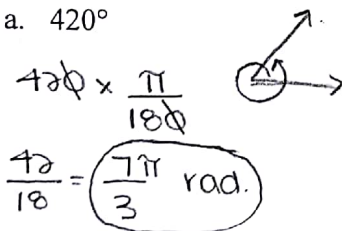 a. 420°
420 × π/180
42/18 = 7π/3 rad.